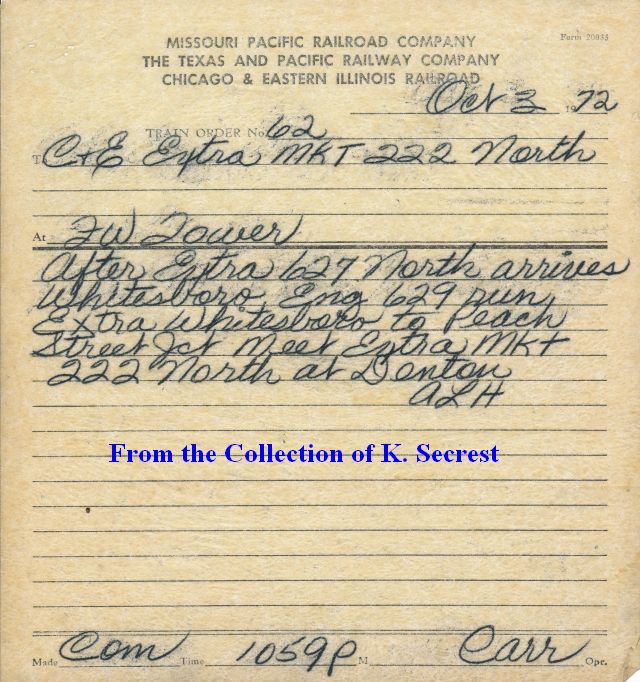 Form 20035
MISSOURI PACIFIC RAILROAD COMPANY
THE TEXAS AND PACIFIC RAILWAY COMPANY
CHICAGO & EASTERN ILLINOIS RAILROAD
Oct 3 1972
TRAIN ORDER No. 62
To C+E Extra MKT 222 North
At FW Tower
After Extra 627 North arrives
Whitesboro Eng 629 run
Extra Whitesboro to Peach
Street Jct Meet Extra MKT
222 North at Denton
ALH
From the Collection of K. Secrest
Made Com Time 1059P M Carr Opr.